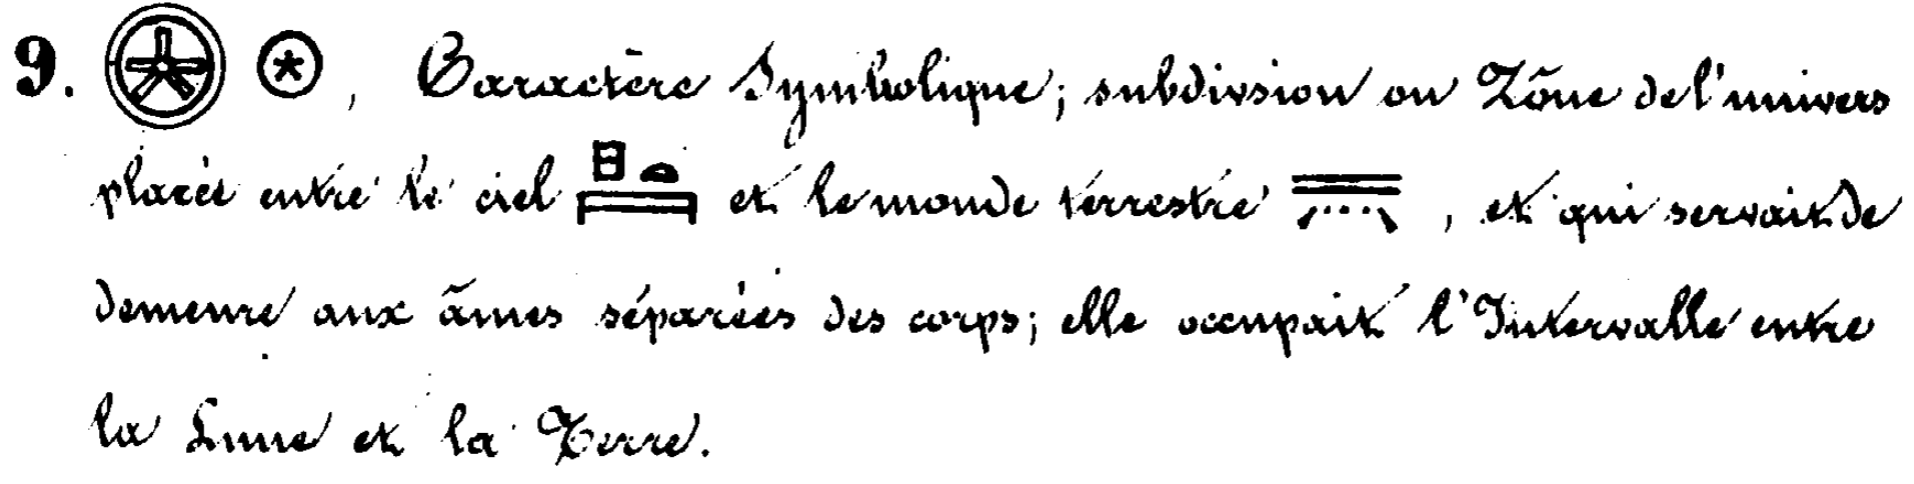 9. 𓇽 𓇽, Caractère Symbolique; subdivision ou Zône de l'univers
placée entre le ciel 𓇯 et le monde terrestre 𓇾, et qui servait de
demeure aux âmes séparées des corps; elle occupait l'Intervalle entre
la Lune et la Terre.